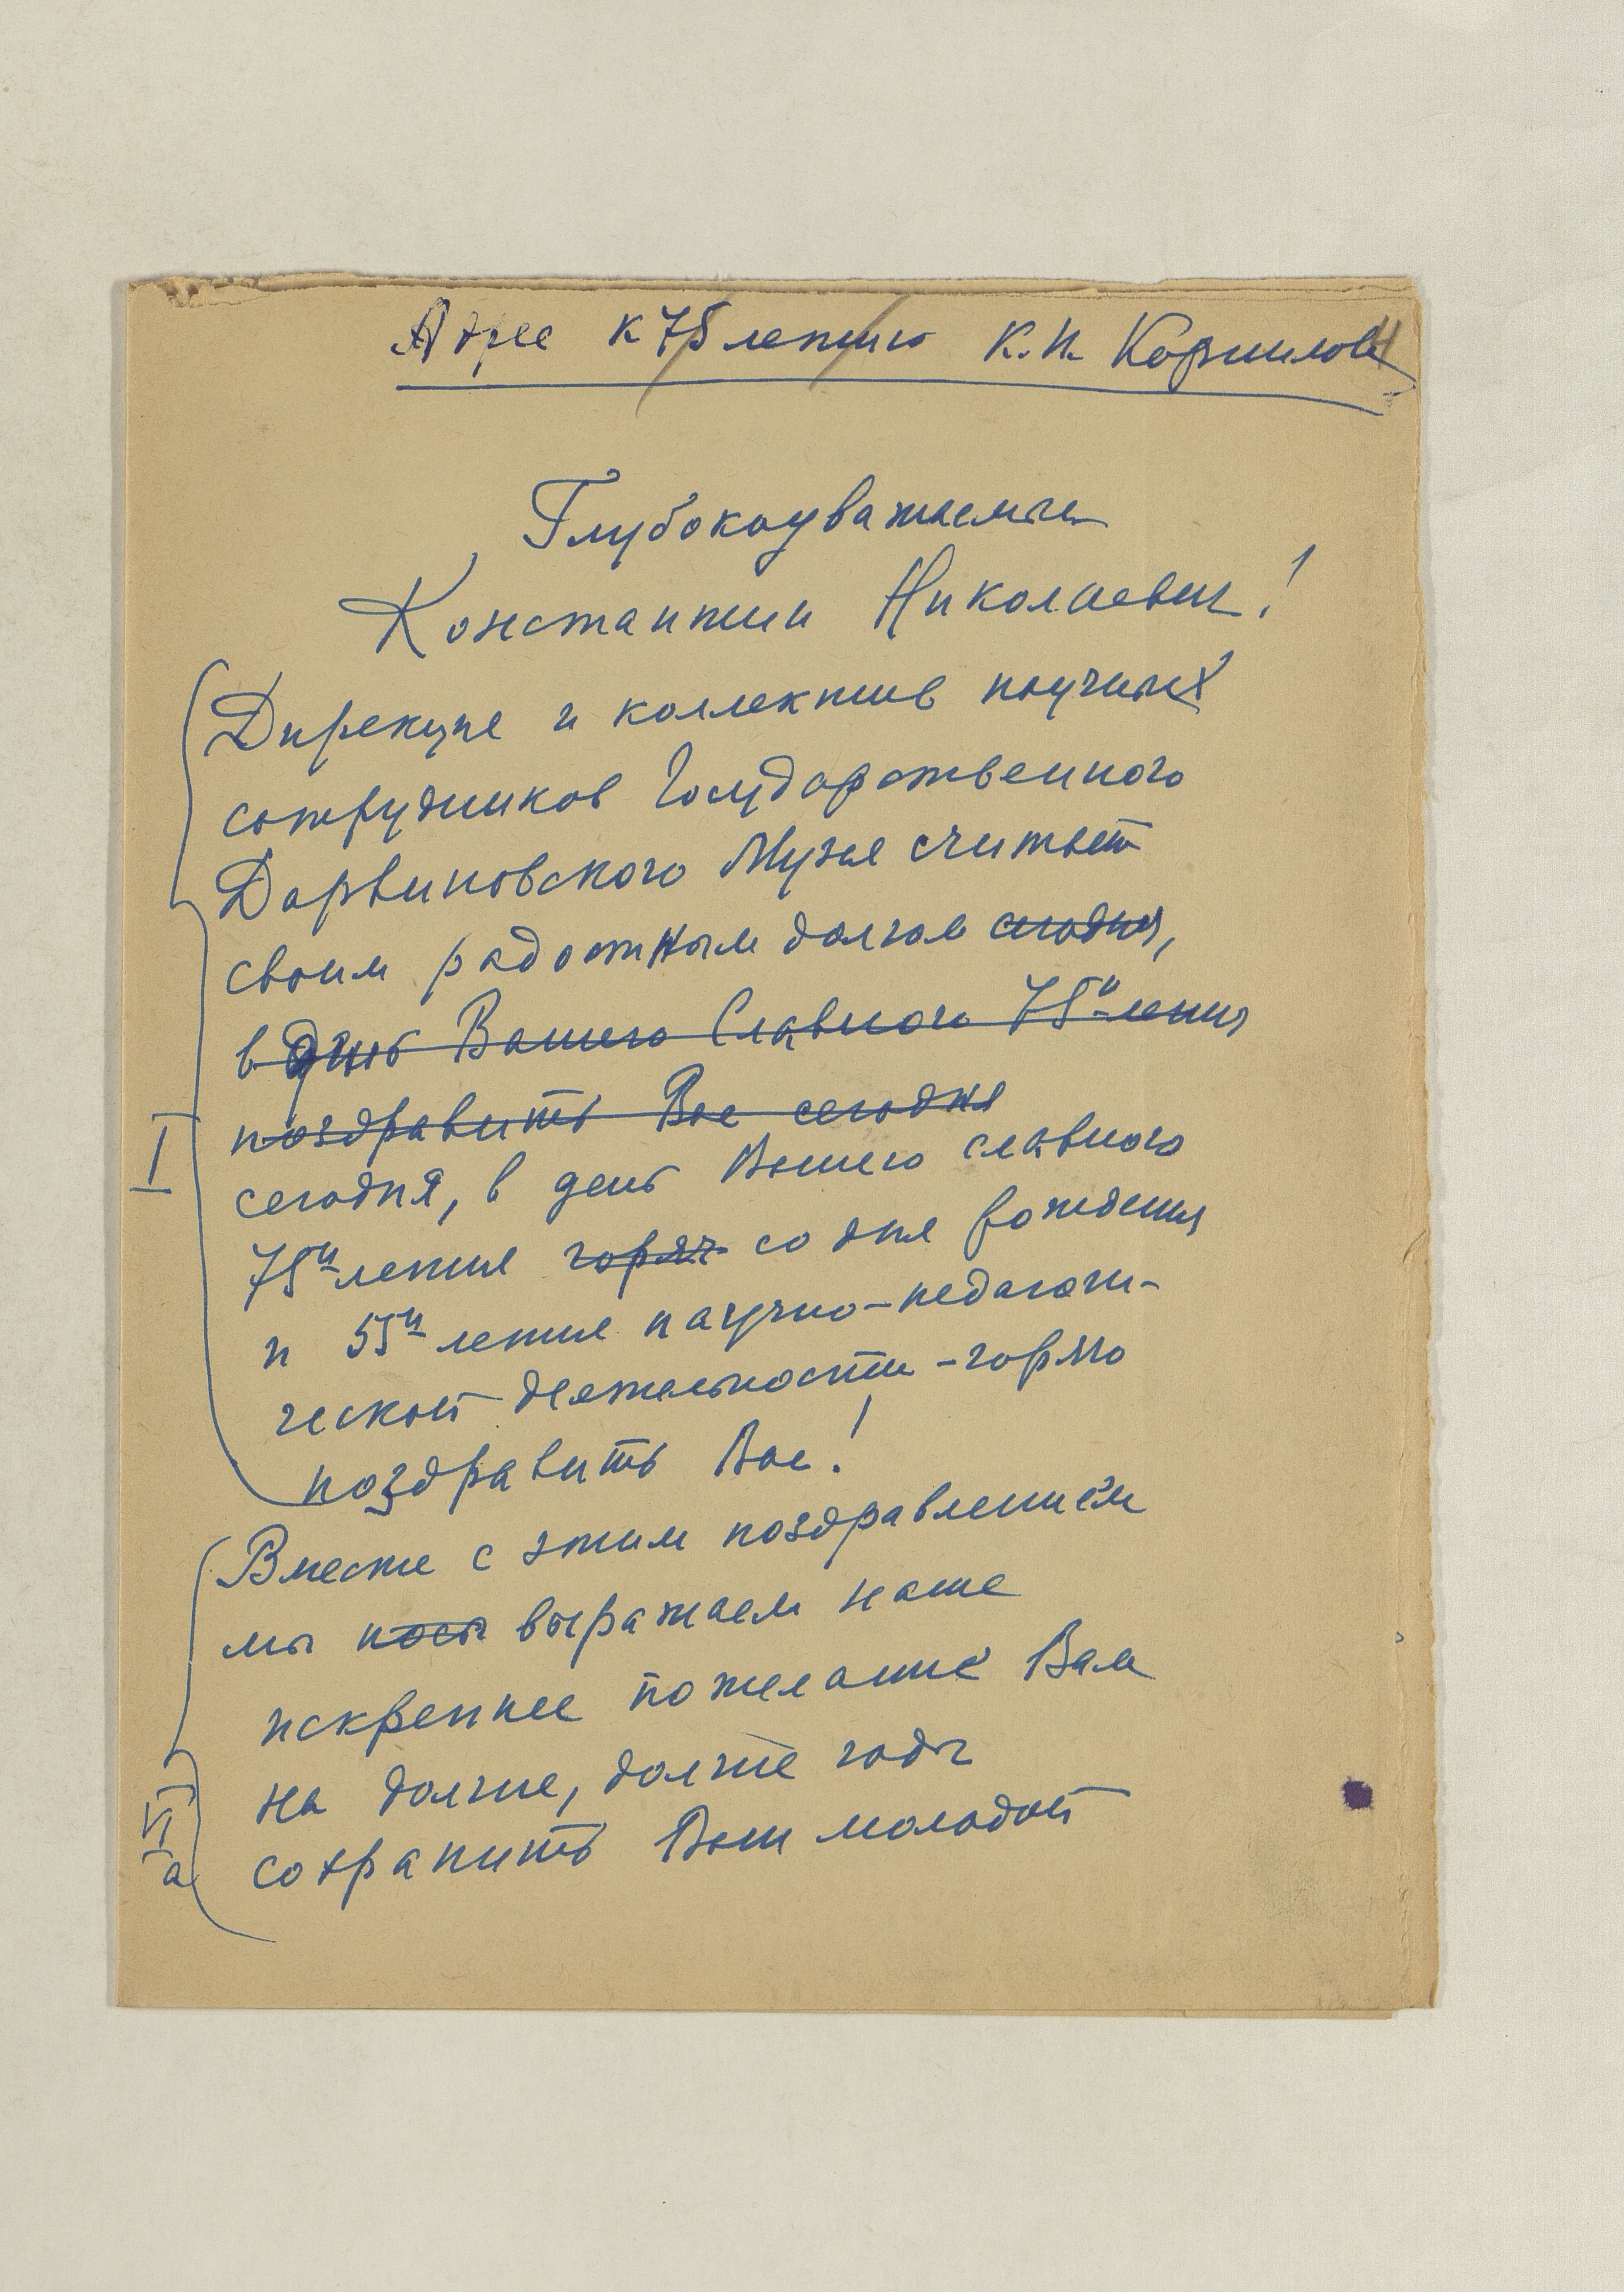 Адрес к 75 летию К.Н. Корнилова
Глубокоуважаемый
Константин Николаевич!
Дирекция и коллектив научных
сотрудников Государственного
Дарвиновского Музея считает
своим радостным долгом сегодня,
в день Вашего Славного 75и-летия
поздравить Вас сегодня
сегодня, в день Вашего славного
75и летия горяч со дня рождения
и 55и летия научно-педагоги-
ческой деятельности - горячо
поздравить Вас!
I
Вместе с этим поздравлением
мы посы выражаем наше
искреннее пожелание Вам
на долгие, долгие годы
сохранить Ваш молодой
VI
а